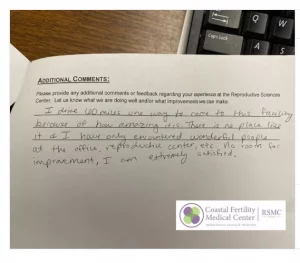 Q W
Caps Lock A
ADDITIONAL COMMENTS:
Please provide any additional comments or feedback regarding your experience at the Reproductive Sciences
Center. Let us know what we are doing well and/or what improvements we can make
I drive 100 miles one way to come to this facility
because of how amazing it is. There is no place like
it & I have only encountered wonderful people
at the office, reproductive center, etc. No room for
improvement, I am extremely satisfied.
Coastal Fertility
Medical Center
RSMC